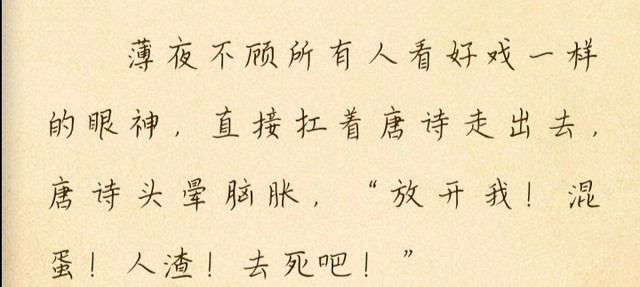 薄夜不顾所有人看好戏一样
的眼神，直接扛着唐诗走出去，
唐诗头晕脑胀，“放开我！混
蛋！人渣！去死吧！”